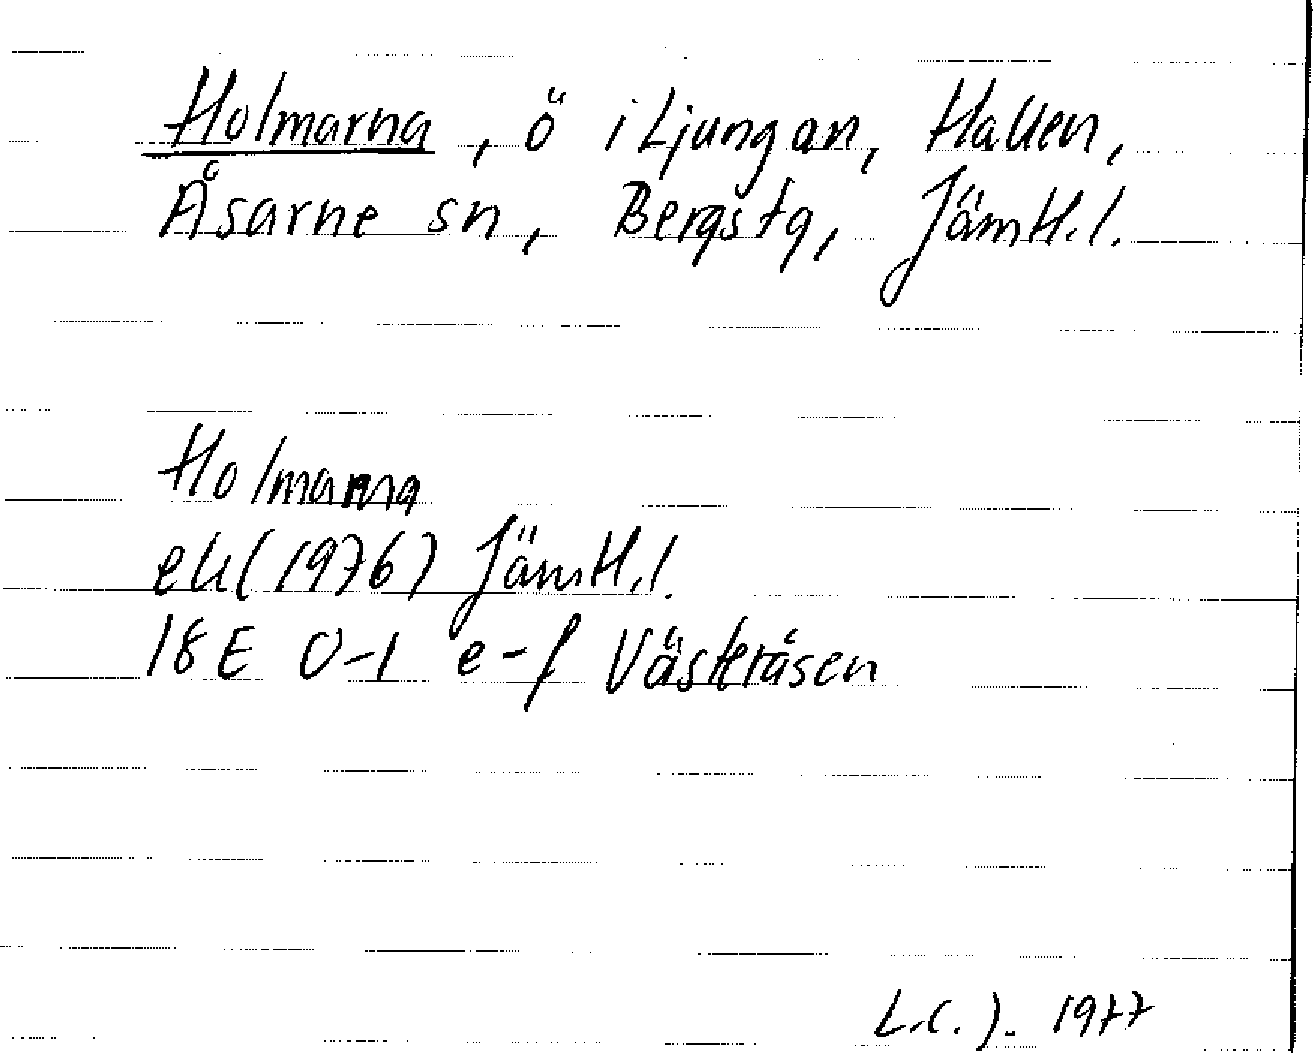 Holmarna, ö i Ljungan, Hallen,
Åsarne sn, Bergs tg, Jämtl. l.
Holmarna
ek (1976) Jämtl. l.
18E 0-1 e-f Västeråsen
L.C.J. 1977